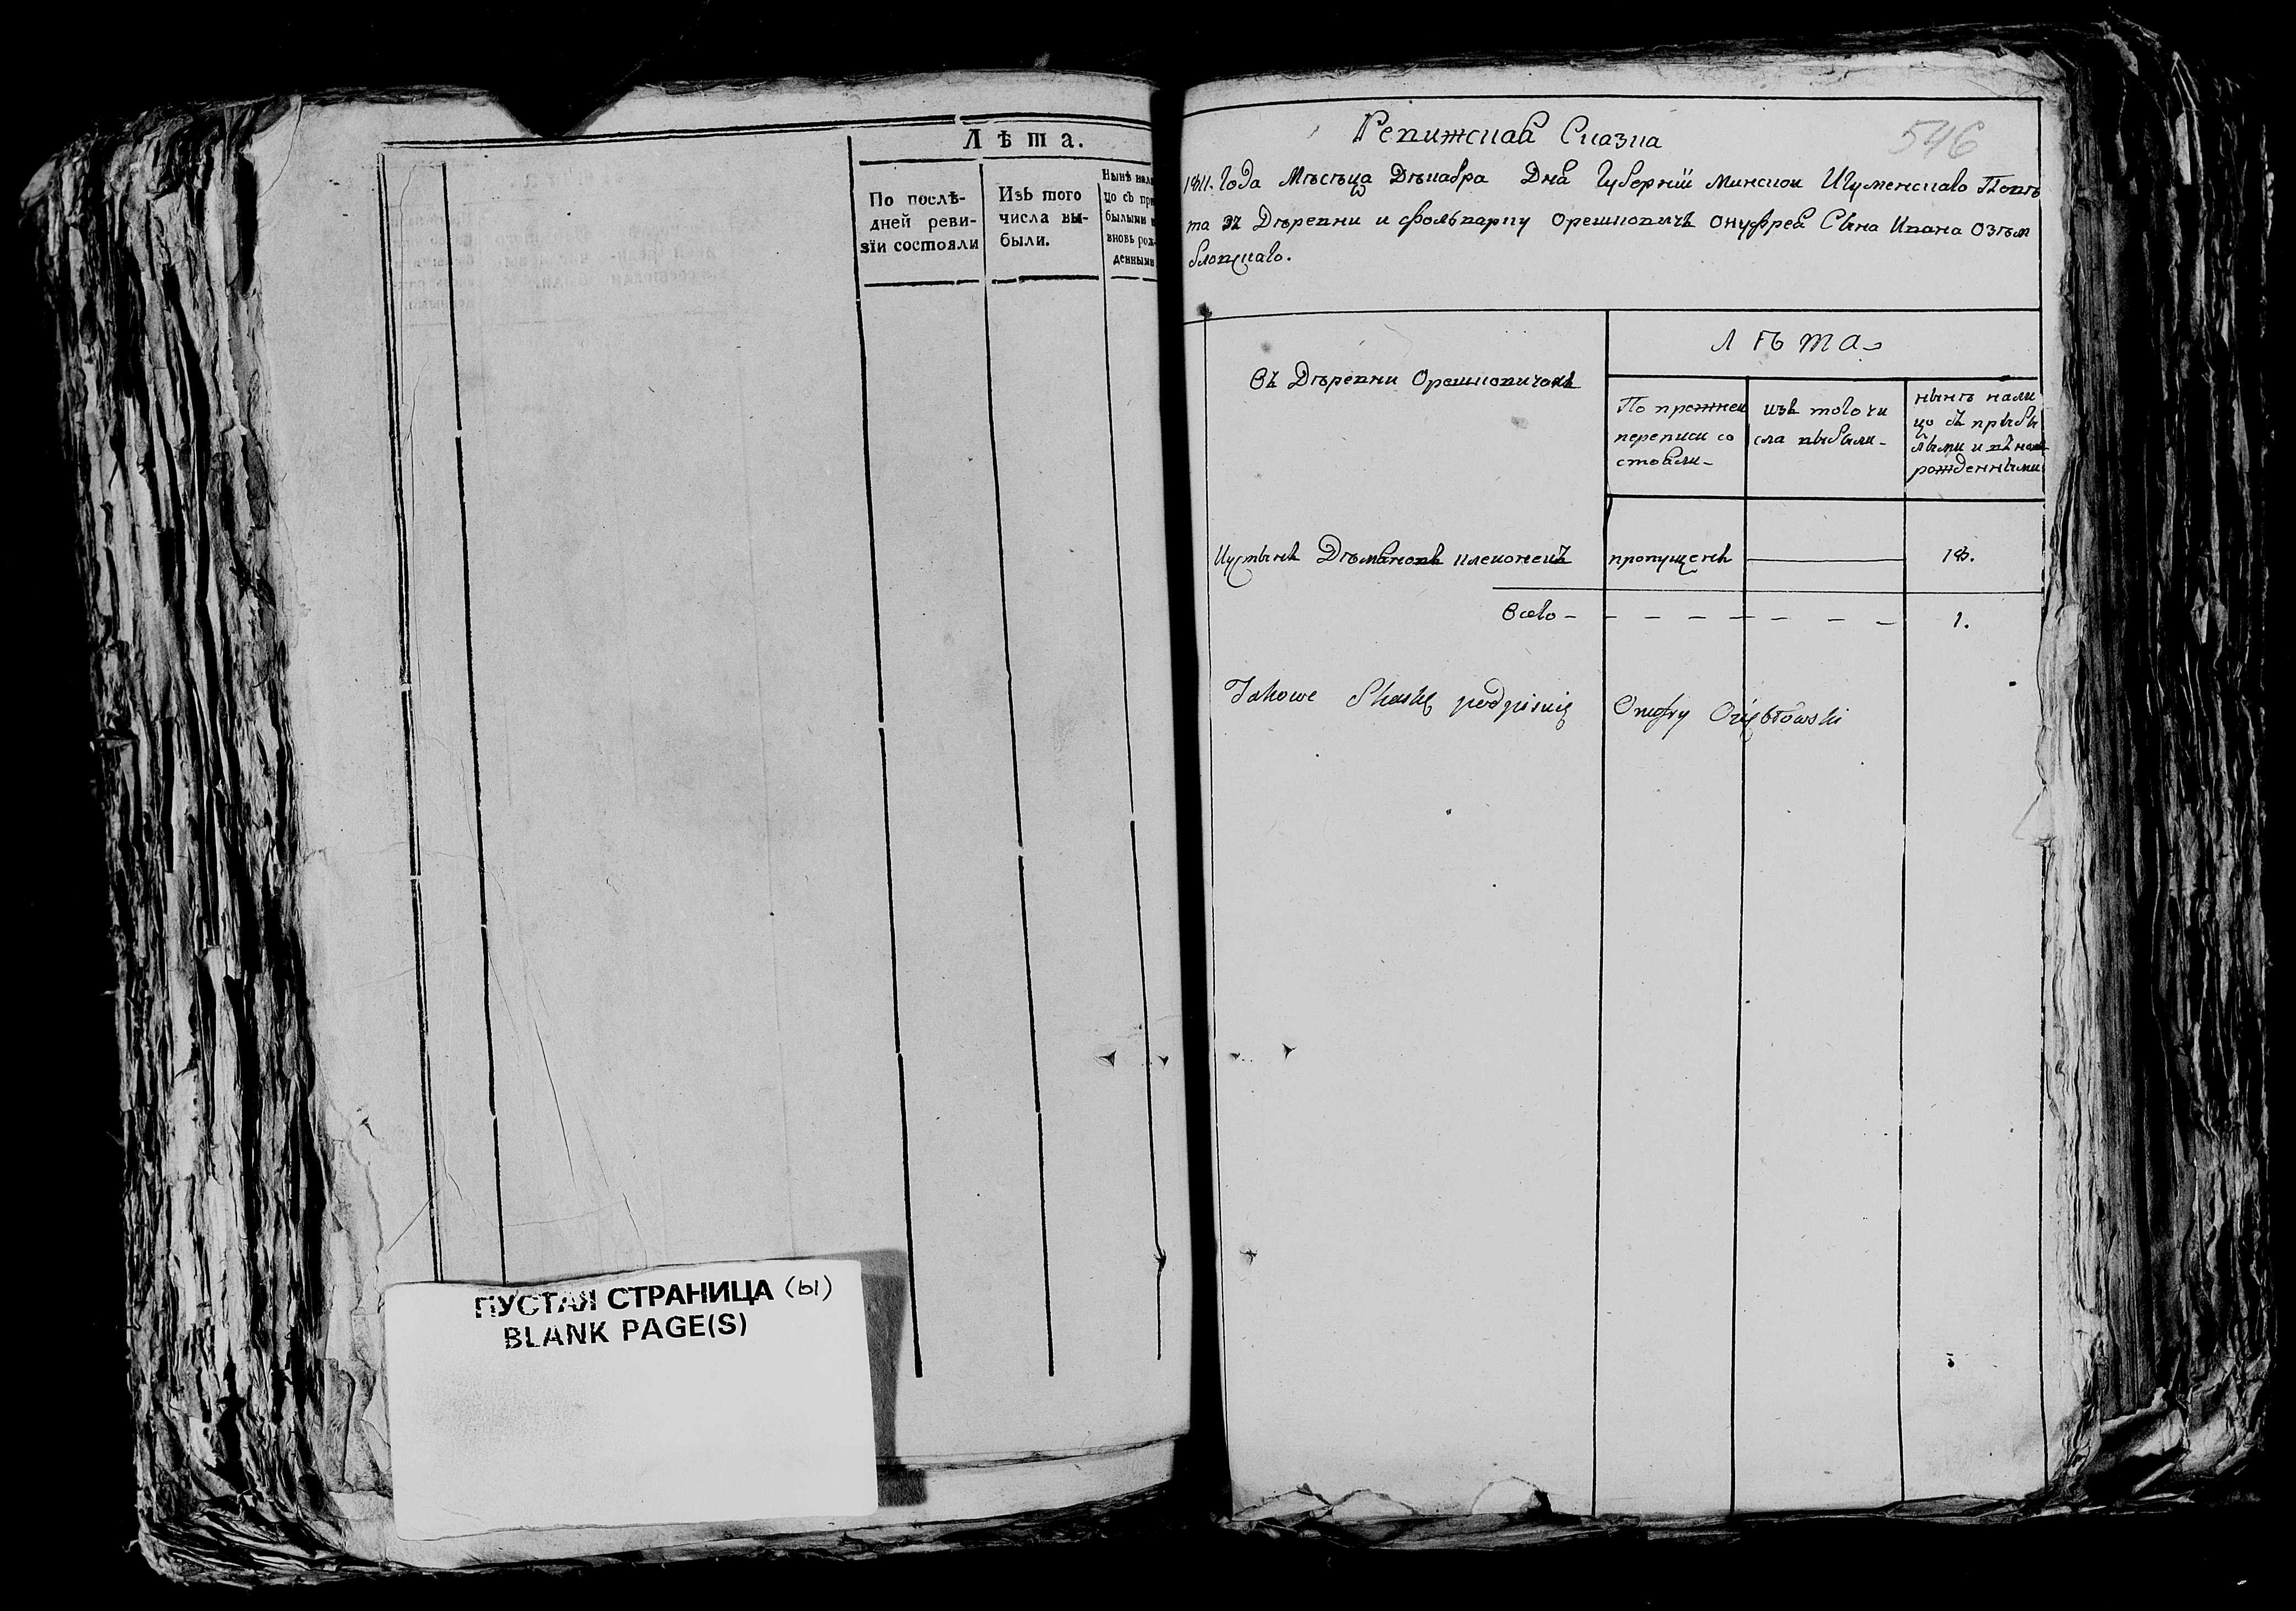 Лѣта.
По послѣ-
дней реви-
зіи состояли
Изъ того
числа вы-
были.
Нынѣ нали
цо съ при
былыми и
вновь рож-
денными
ПУСТАЯ СТРАНИЦА (ы)
BLANK PAGE(S)
546
Ревижская Сказка
1811. Года Мѣсѣца Дѣкабра Дна Губерніи Минской Игуменскаго Повѣ
та въ Дѣревни и фольварку Орешковичъ Онуфрея Сына Ивана Озѣм
бловскаго.
Въ Дѣревни Орешковичахъ
ЛѢТА
По прежнеи
переписи со
стояли-
изъ того чи
сла выбыли-
нынѣ нали
цо съ прыбы
лыми и въ новъ
рожденными
Иустынъ Дѣмяновъ клеконецъ пропущенъ 18.
Всего - 1.
Takowe Skaskę podpisuię Onufry Oziębłowski